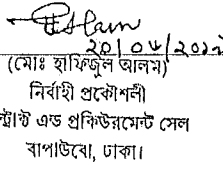 ২০/০৮/২০১৯
(মোঃ হাফিজুল আলম)
নির্বাহী প্রকৌশলী
ন্ট্রাক্ট এন্ড প্রকিউরমেন্ট সেল
বাপাউবো, ঢাকা।